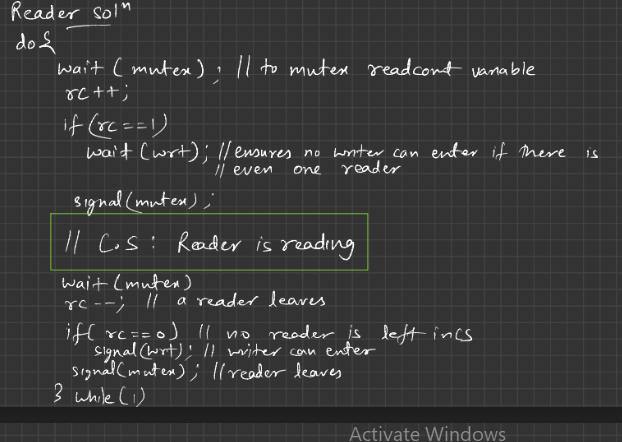 Reader solⁿ
do {
wait (mutex); // to mutex readcont variable
rc++;
if (rc==1)
wait (wrt); // ensures no writer can enter if there is
// even one reader
signal(mutex);
// C.S : Reader is reading
wait (mutex)
rc --; // a reader leaves
if( rc==0) // no reader is left in cs
signal(wrt); // writer can enter
signal(mutex); // reader leaves
} while(1)
Activate Windows